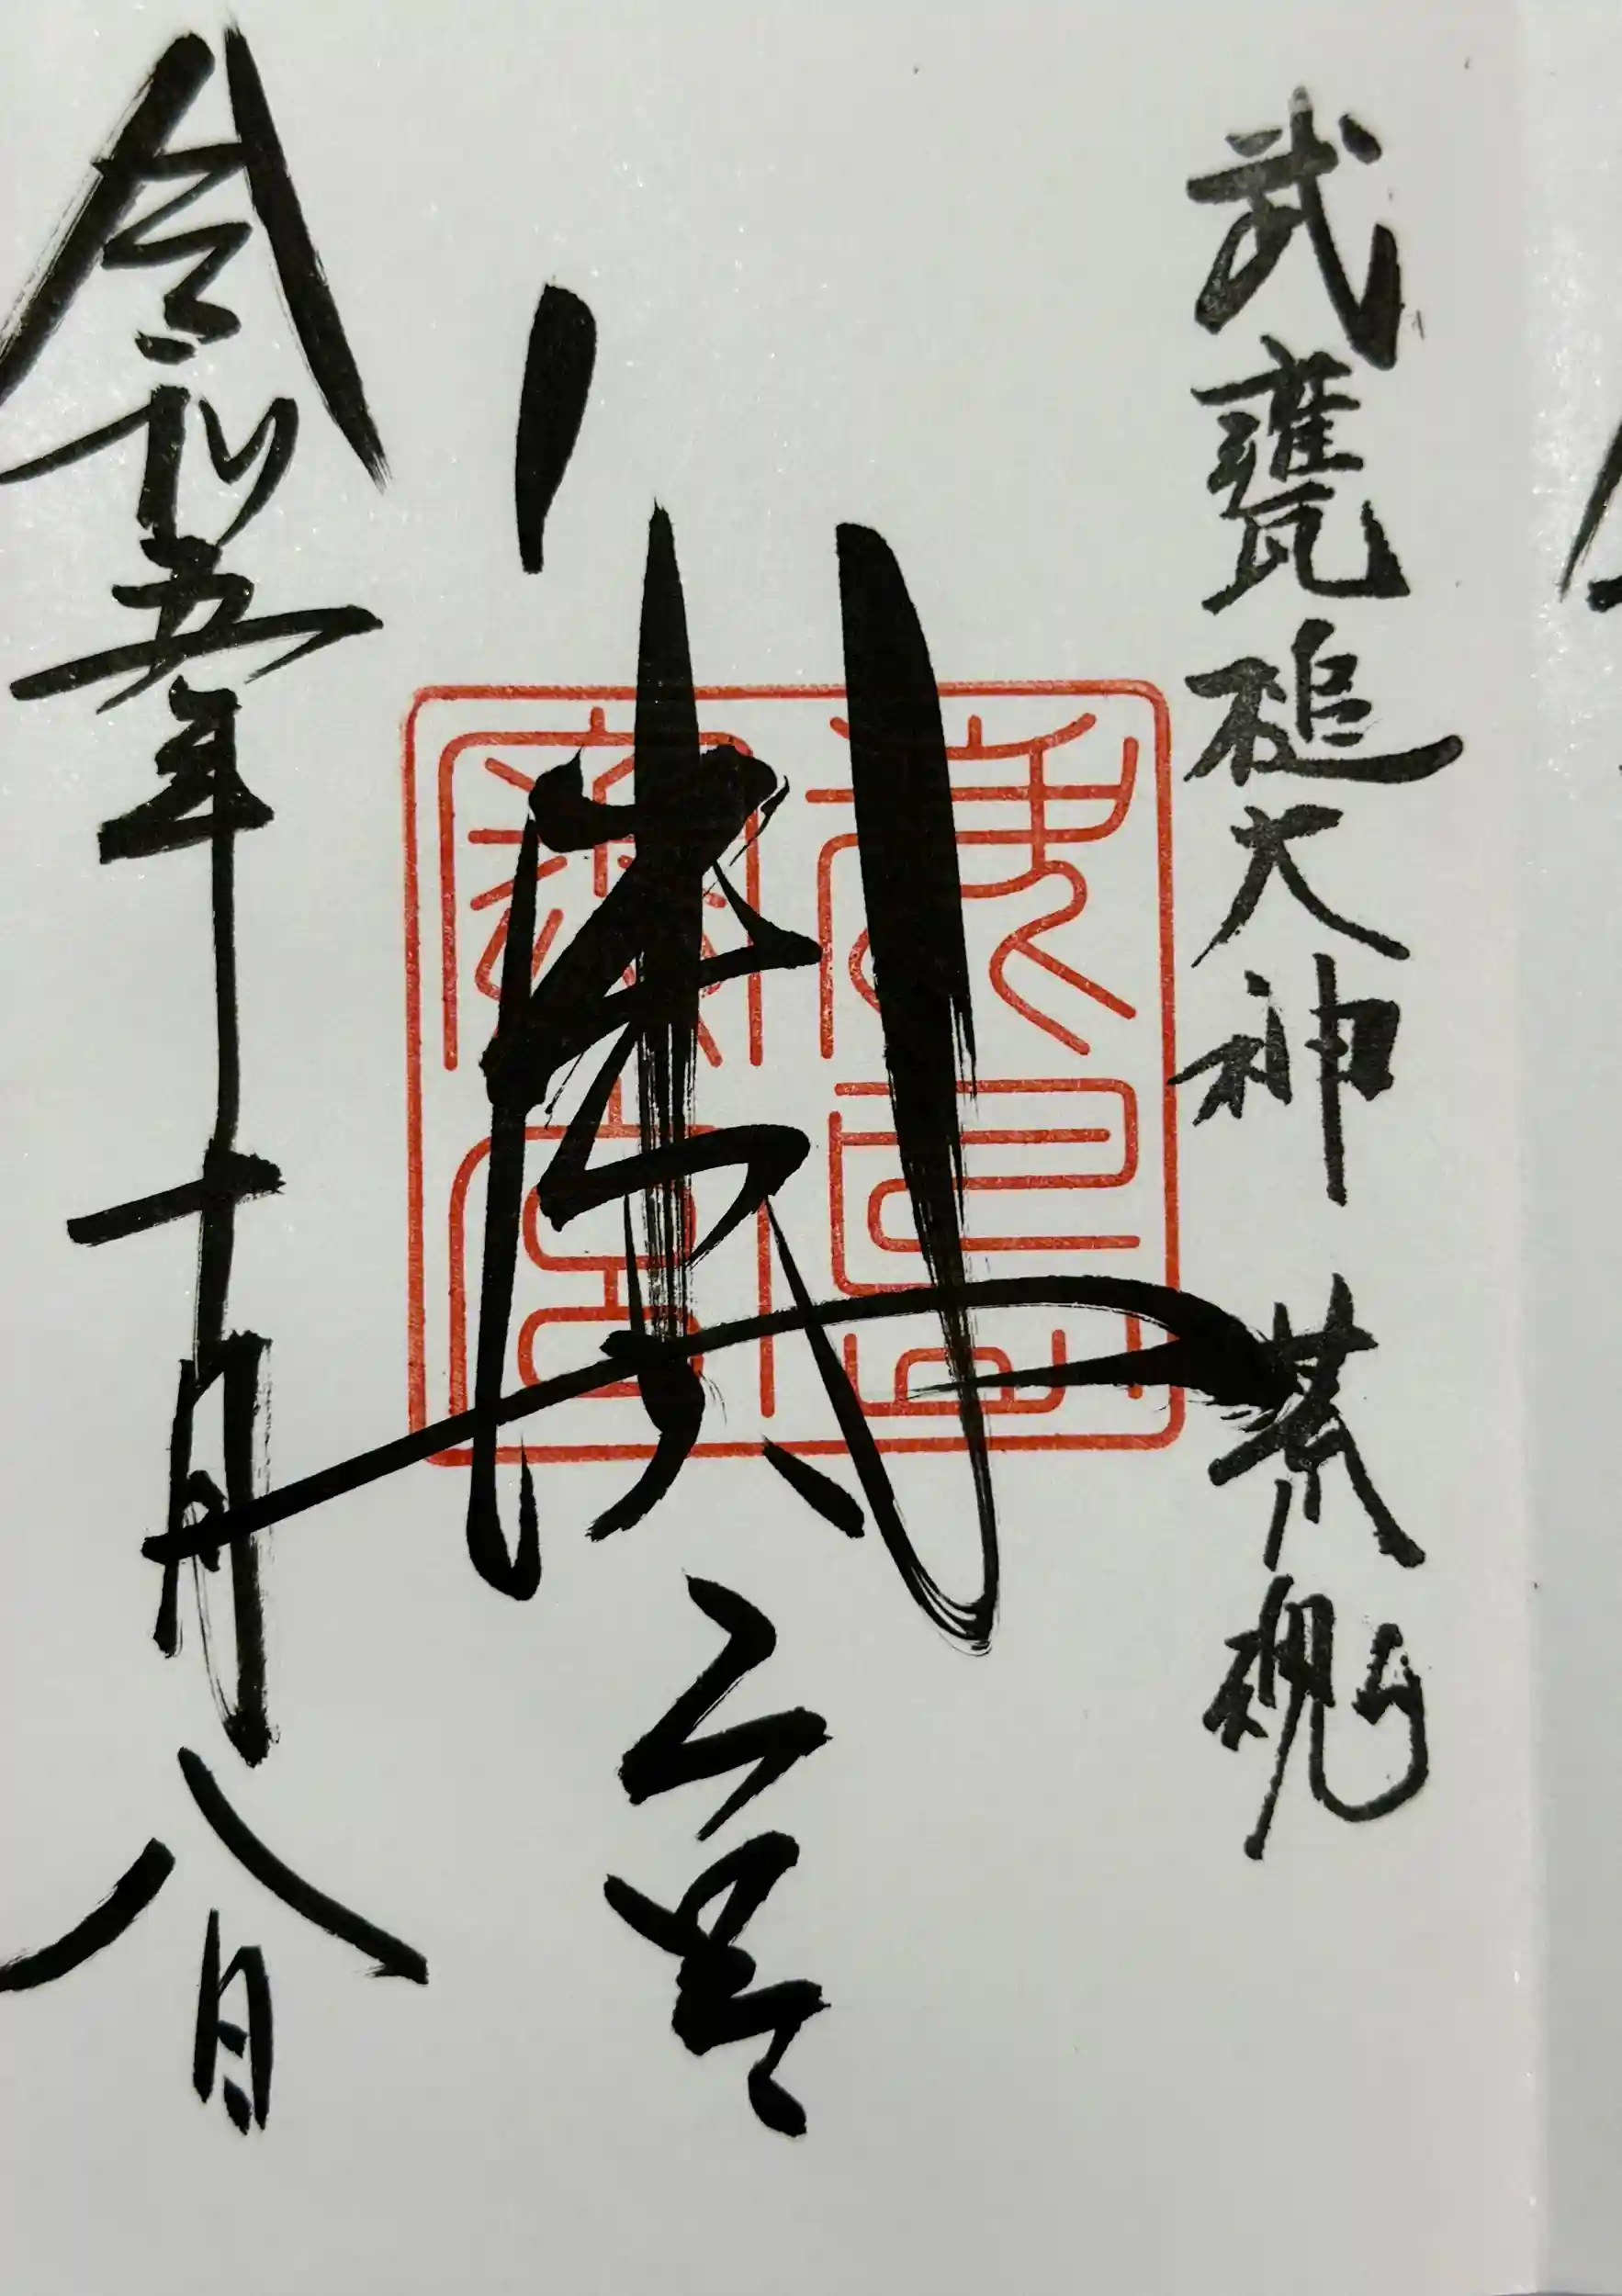 武甕槌大神 荒魂
奥宮
鹿島
奥宮
令和五年十月八日